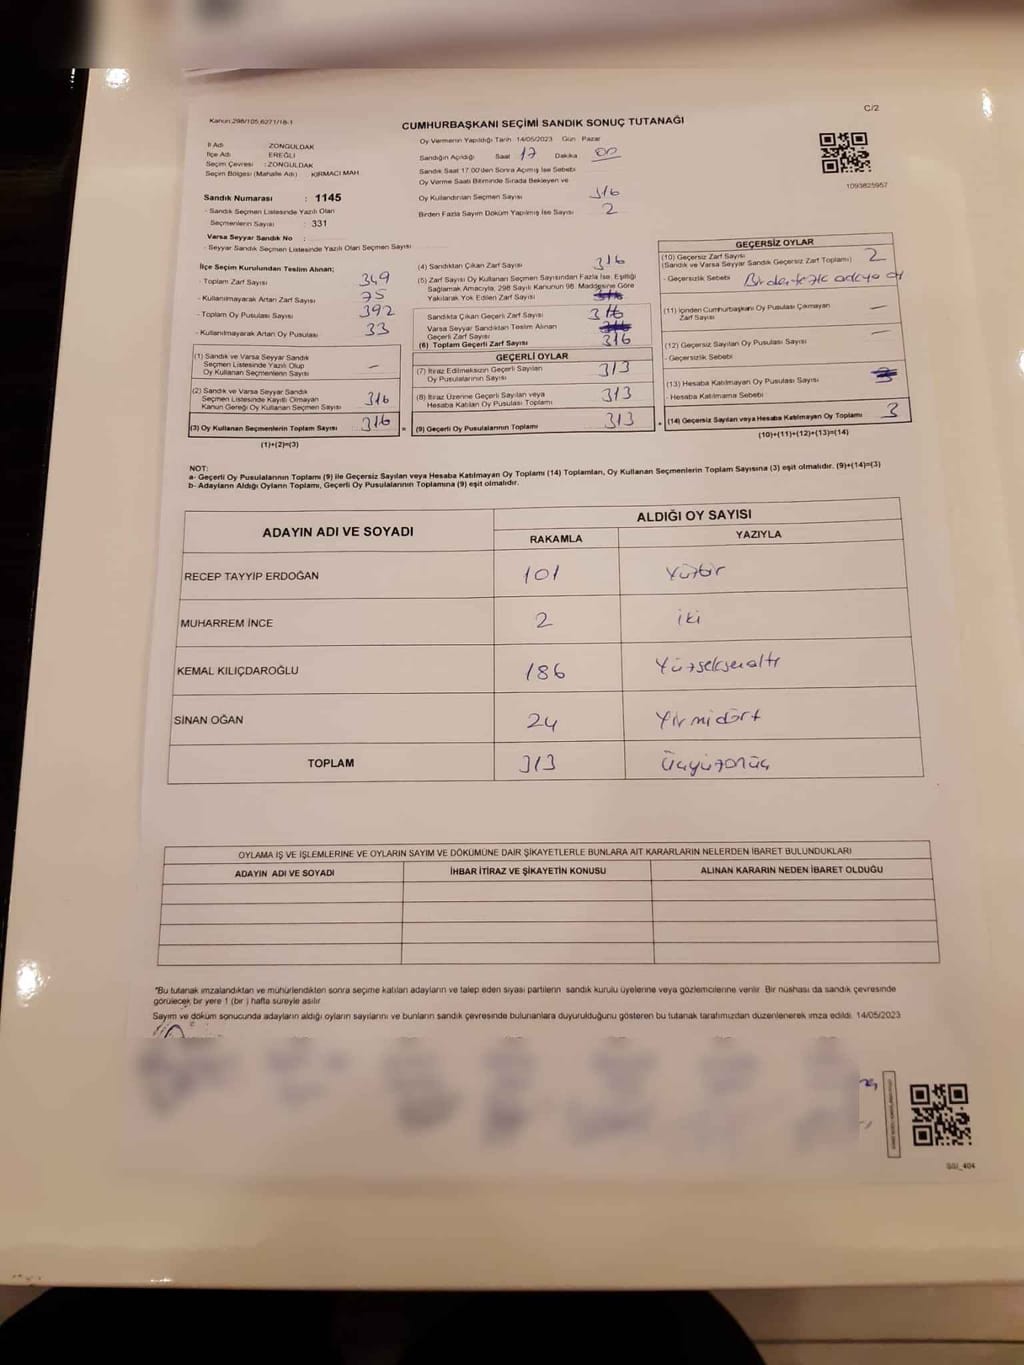 C/2
Kanun:298/105,6271/18-1
CUMHURBAŞKANI SEÇİMİ SANDIK SONUÇ TUTANAĞI
İl Adı : ZONGULDAK
İlçe Adı : EREĞLİ
Seçim Çevresi : ZONGULDAK
Seçim Bölgesi (Mahalle Adı) : KIRMACI MAH.
Sandık Numarası : 1145
- Sandık Seçmen Listesinde Yazılı Olan
Seçmenlerin Sayısı : 331
Varsa Seyyar Sandık No :
- Seyyar Sandık Seçmen Listesinde Yazılı Olan Seçmen Sayısı
Oy Vermenin Yapıldığı Tarih 14/05/2023 Gün Pazar
Sandığın Açıldığı Saat 17 Dakika 00
Sandık Saat 17.00'den Sonra Açılmış İse Sebebi
Oy Verme Saati Bitiminde Sırada Bekleyen ve
Oy Kullandırılan Seçmen Sayısı 316
Birden Fazla Sayım Döküm Yapılmış İse Sayısı 2
1093825957
İlçe Seçim Kurulundan Teslim Alınan;
- Toplam Zarf Sayısı 349
- Kullanılmayarak Artan Zarf Sayısı 75
- Toplam Oy Pusulası Sayısı 392
- Kullanılmayarak Artan Oy Pusulası 33
(1) Sandık ve Varsa Seyyar Sandık
Seçmen Listesinde Yazılı Olup
Oy Kullanan Seçmenlerin Sayısı —
(2) Sandık ve Varsa Seyyar Sandık
Seçmen Listesinde Kayıtlı Olmayan
Kanun Gereği Oy Kullanan Seçmen Sayısı 316
(3) Oy Kullanan Seçmenlerin Toplam Sayısı 316
(1)+(2)=(3)
(4) Sandıktan Çıkan Zarf Sayısı 316
(5) Zarf Sayısı Oy Kullanan Seçmen Sayısından Fazla İse, Eşitliği
Sağlamak Amacıyla, 298 Sayılı Kanunun 98. Maddesine Göre
Yakılarak Yok Edilen Zarf Sayısı
Sandıkta Çıkan Geçerli Zarf Sayısı 316
Varsa Seyyar Sandıktan Teslim Alınan
Geçerli Zarf Sayısı
(6) Toplam Geçerli Zarf Sayısı 316
GEÇERLİ OYLAR
(7) İtiraz Edilmeksizin Geçerli Sayılan
Oy Pusulalarının Sayısı 313
(8) İtiraz Üzerine Geçerli Sayılan veya
Hesaba Katılan Oy Pusulası Toplamı 313
(9) Geçerli Oy Pusulalarının Toplamı 313
GEÇERSİZ OYLAR
(10) Geçersiz Zarf Sayısı
(Sandık ve Varsa Seyyar Sandık Geçersiz Zarf Toplamı) 2
- Geçersizlik Sebebi Birden fazla adaya oy
(11) İçinden Cumhurbaşkanı Oy Pusulası Çıkmayan
Zarf Sayısı —
(12) Geçersiz Sayılan Oy Pusulası Sayısı —
- Geçersizlik Sebebi
(13) Hesaba Katılmayan Oy Pusulası Sayısı 3
- Hesaba Katılmama Sebebi
(14) Geçersiz Sayılan veya Hesaba Katılmayan Oy Toplamı 3
(10)+(11)+(12)+(13)=(14)
NOT:
a- Geçerli Oy Pusulalarının Toplamı (9) ile Geçersiz Sayılan veya Hesaba Katılmayan Oy Toplamı (14) Toplamları, Oy Kullanan Seçmenlerin Toplam Sayısına (3) eşit olmalıdır. (9)+(14)=(3)
b- Adayların Aldığı Oyların Toplamı, Geçerli Oy Pusulalarının Toplamına (9) eşit olmalıdır.
ADAYIN ADI VE SOYADI ALDIĞI OY SAYISI
RAKAMLA YAZIYLA
RECEP TAYYİP ERDOĞAN 101 Yüzbir
MUHARREM İNCE 2 iki
KEMAL KILIÇDAROĞLU 186 Yüzseksenaltı
SİNAN OĞAN 24 Yirmidört
TOPLAM 313 Üçyüzonüç
OYLAMA İŞ VE İŞLEMLERİNE VE OYLARIN SAYIM VE DÖKÜMÜNE DAİR ŞİKAYETLERLE BUNLARA AİT KARARLARIN NELERDEN İBARET BULUNDUKLARI
ADAYIN ADI VE SOYADI İHBAR İTİRAZ VE ŞİKAYETİN KONUSU ALINAN KARARIN NEDEN İBARET OLDUĞU
*Bu tutanak imzalandıktan ve mühürlendikten sonra seçime katılan adayların ve talep eden siyasi partilerin sandık kurulu üyelerine veya gözlemcilerine verilir. Bir nüshası da sandık çevresinde
görülecek bir yere 1 (bir ) hafta süreyle asılır.
Sayım ve döküm sonucunda adayların aldığı oyların sayılarını ve bunların sandık çevresinde bulunanlara duyurulduğunu gösteren bu tutanak tarafımızdan düzenlenerek imza edildi. 14/05/2023
SSI_404